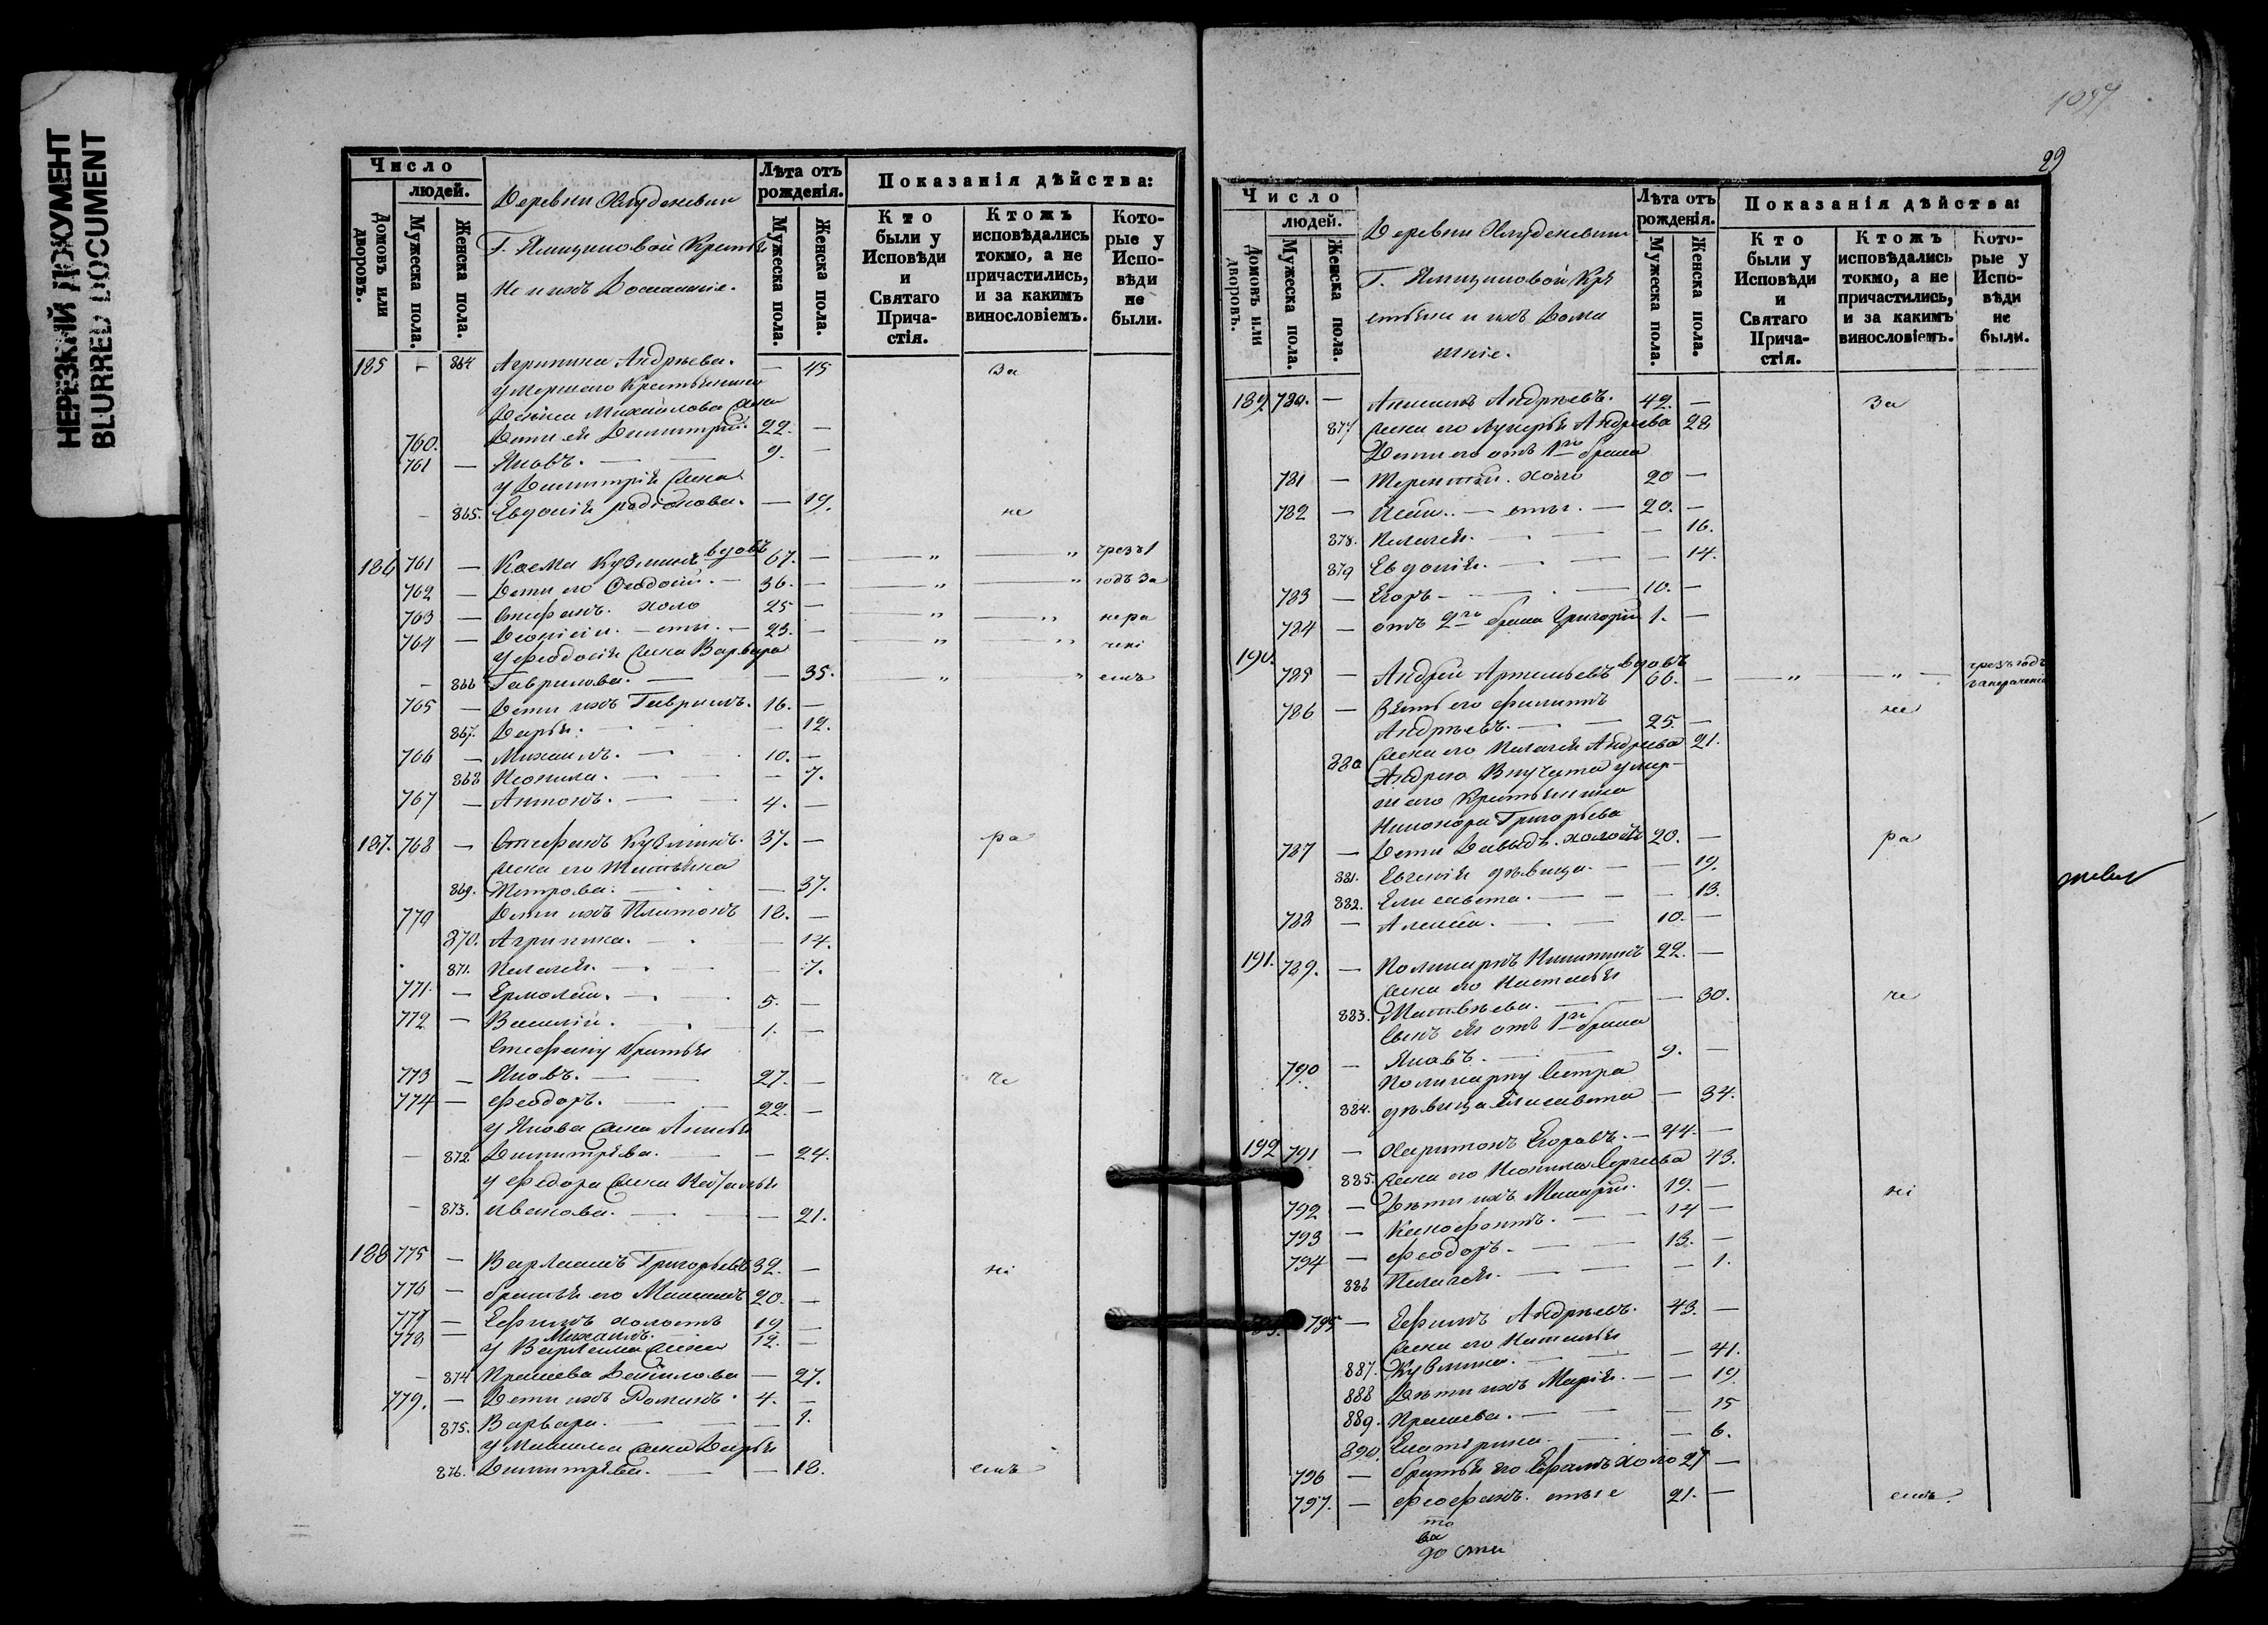 НЕРЕЗКИЙ ДОКУМЕНТ
BLURRED DOCUMENT
Число
людей.
Домовъ или дворовъ.
Мужеска пола.
Женска пола.
Деревни
Г. Крестья
не и ихъ Домашніе.
Лѣта отъ рожденія.
Мужеска пола.
Женска пола.
Показанія дѣйства:
Кто были у Исповѣди и Святаго Прича-стія.
Ктожъ исповѣдались токмо, а не причастились, и за какимъ винословіемъ.
Кото-рые у Испо-вѣди не были.
185 - 864 Агрипина Андреева. - 45 За
умершаго Крестьянина
Михайлова жена
760. Дети ея Димитрій. 22. -
761 - Яковъ. - 9. -
у Димитрія жена
- 865. Евдокія родіонова. - 19. не
186 761 - Косма Кузминъ вдовъ 67. - " " чрезъ 1
762 - Дети его Феодосій. - 36. - " " годъ за
763 - Стефанъ. холо 25 - " " нера
764 - Діонісій. - сты. - 23. - " " чені
у Феодосія жена Варвара
- 866 Гаврилова. - - 35. " " емъ
765 - Дети ихъ Гавриилъ. 16. -
867. Дарья. - - 12.
766 - Михаилъ. - 10. -
868 Неонила. - - 7.
767 - Антонъ. - 4. -
187. 768 - Стефанъ Кузминъ. 37. - ра
жена его Татьяна
869. Петрова. - - 37.
770 Дети ихъ Платонъ 18. -
870. Агрипина. - - 14.
871. Пелагея. - - 7.
771. - Ермолай. - 5. -
772 - Василій. - 1. -
Стефану братья
773 - Яковъ. - 27. - че
774 - Феодоръ. - 22. -
у Якова жена
- 872 Димитріева. - - 24.
у Федора жена Наталья
- 873. иванова. - - 21.
188 775 - Варлаамъ Григорьевъ 32. - ні
776 - братья его 20. -
777 - Ефимъ холостъ 19 -
778 - Михаилъ. 12. -
у Варлаама жена
- 874 Данилова - 27.
779. - Дети ихъ Романъ. 4. -
875. Варвара. - - 1.
у жена Дарья
876. Димитріева. - - 18. емъ
29
Число
людей.
Домовъ или дворовъ.
Мужеска пола.
Женска пола.
Деревни
Г. Кре
стьяне и ихъ Дома
шніе.
Лѣта отъ рожденія.
Мужеска пола.
Женска пола.
Показанія дѣйства:
Кто были у Исповѣди и Святаго Прича-стія.
Ктожъ исповѣдались токмо, а не причастились, и за какимъ винословіемъ.
Кото-рые у Испо-вѣди не были.
189. 780. - Андреевъ. 42. - За
877 жена его Лукерья Андреева 28
Дети его отъ 1го брака
781 - Терентій. холо 20 -
782 - Исай. - сты. - 20. -
878. Пелагея. - - 16.
879 Евдокія. - - 14.
783 - Егоръ - 10. -
784 - отъ 2го брака Григорій 1. -
190. 785 - Андрей вдовъ 66. - " " чрезъ годъ
за нераченіе
786 - Зять его Филиппъ не
Андреевъ. - 25. -
880 жена его Пелагея Андреева 21.
Андрея Внучата умер-
шаго Крестьянина
Никонора Григорьева
787 - Дети Давыдъ. холостъ 20. - ра
881. Евгенія дѣвица. - - 19.
882. Елисавета. - - 13.
788 - Алексѣй. - 10. -
191. 789. - Поликарпъ Никитинъ 22. -
жена его Наталья
883. Матвѣева. - - 30. че
Сынъ ея отъ 1го брака
790 - Яковъ. - 9. -
Поликарпу Сестра
884. дѣвица Елисавета - 34.
192 791 - Харитонъ Егоровъ. - 44. -
885. жена его Неонила Сергеева 43.
792 - Дѣти ихъ Макарій. 19. - ні
793 - Ксенофонтъ. - 14 -
794 - Феодоръ. - 13. -
886 Пелагея. - - 1.
795 - Ефимъ Андреевъ. 43. -
жена его Наталья
887. Кузмина. - - 41.
888 Дѣти ихъ Марія. - - 19.
889. - - 15
890. Екатерина. - - 6.
796 - братья его холо 27 -
797. - Феофанъ. стые 21. - емъ.